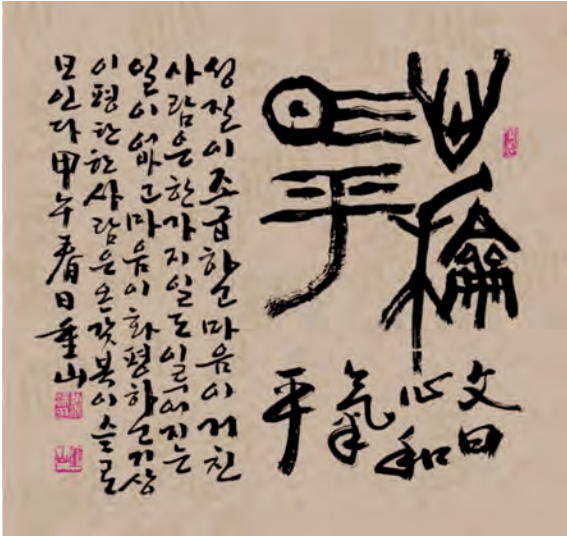 心龢
平
文曰
心和
氣
平
성질이조급하고마음이거친
사람은한가지일도이루어지는
일이없고마음이화평하고기상
이평탄한사람은온갖복이스스로
모인다甲午春日重山